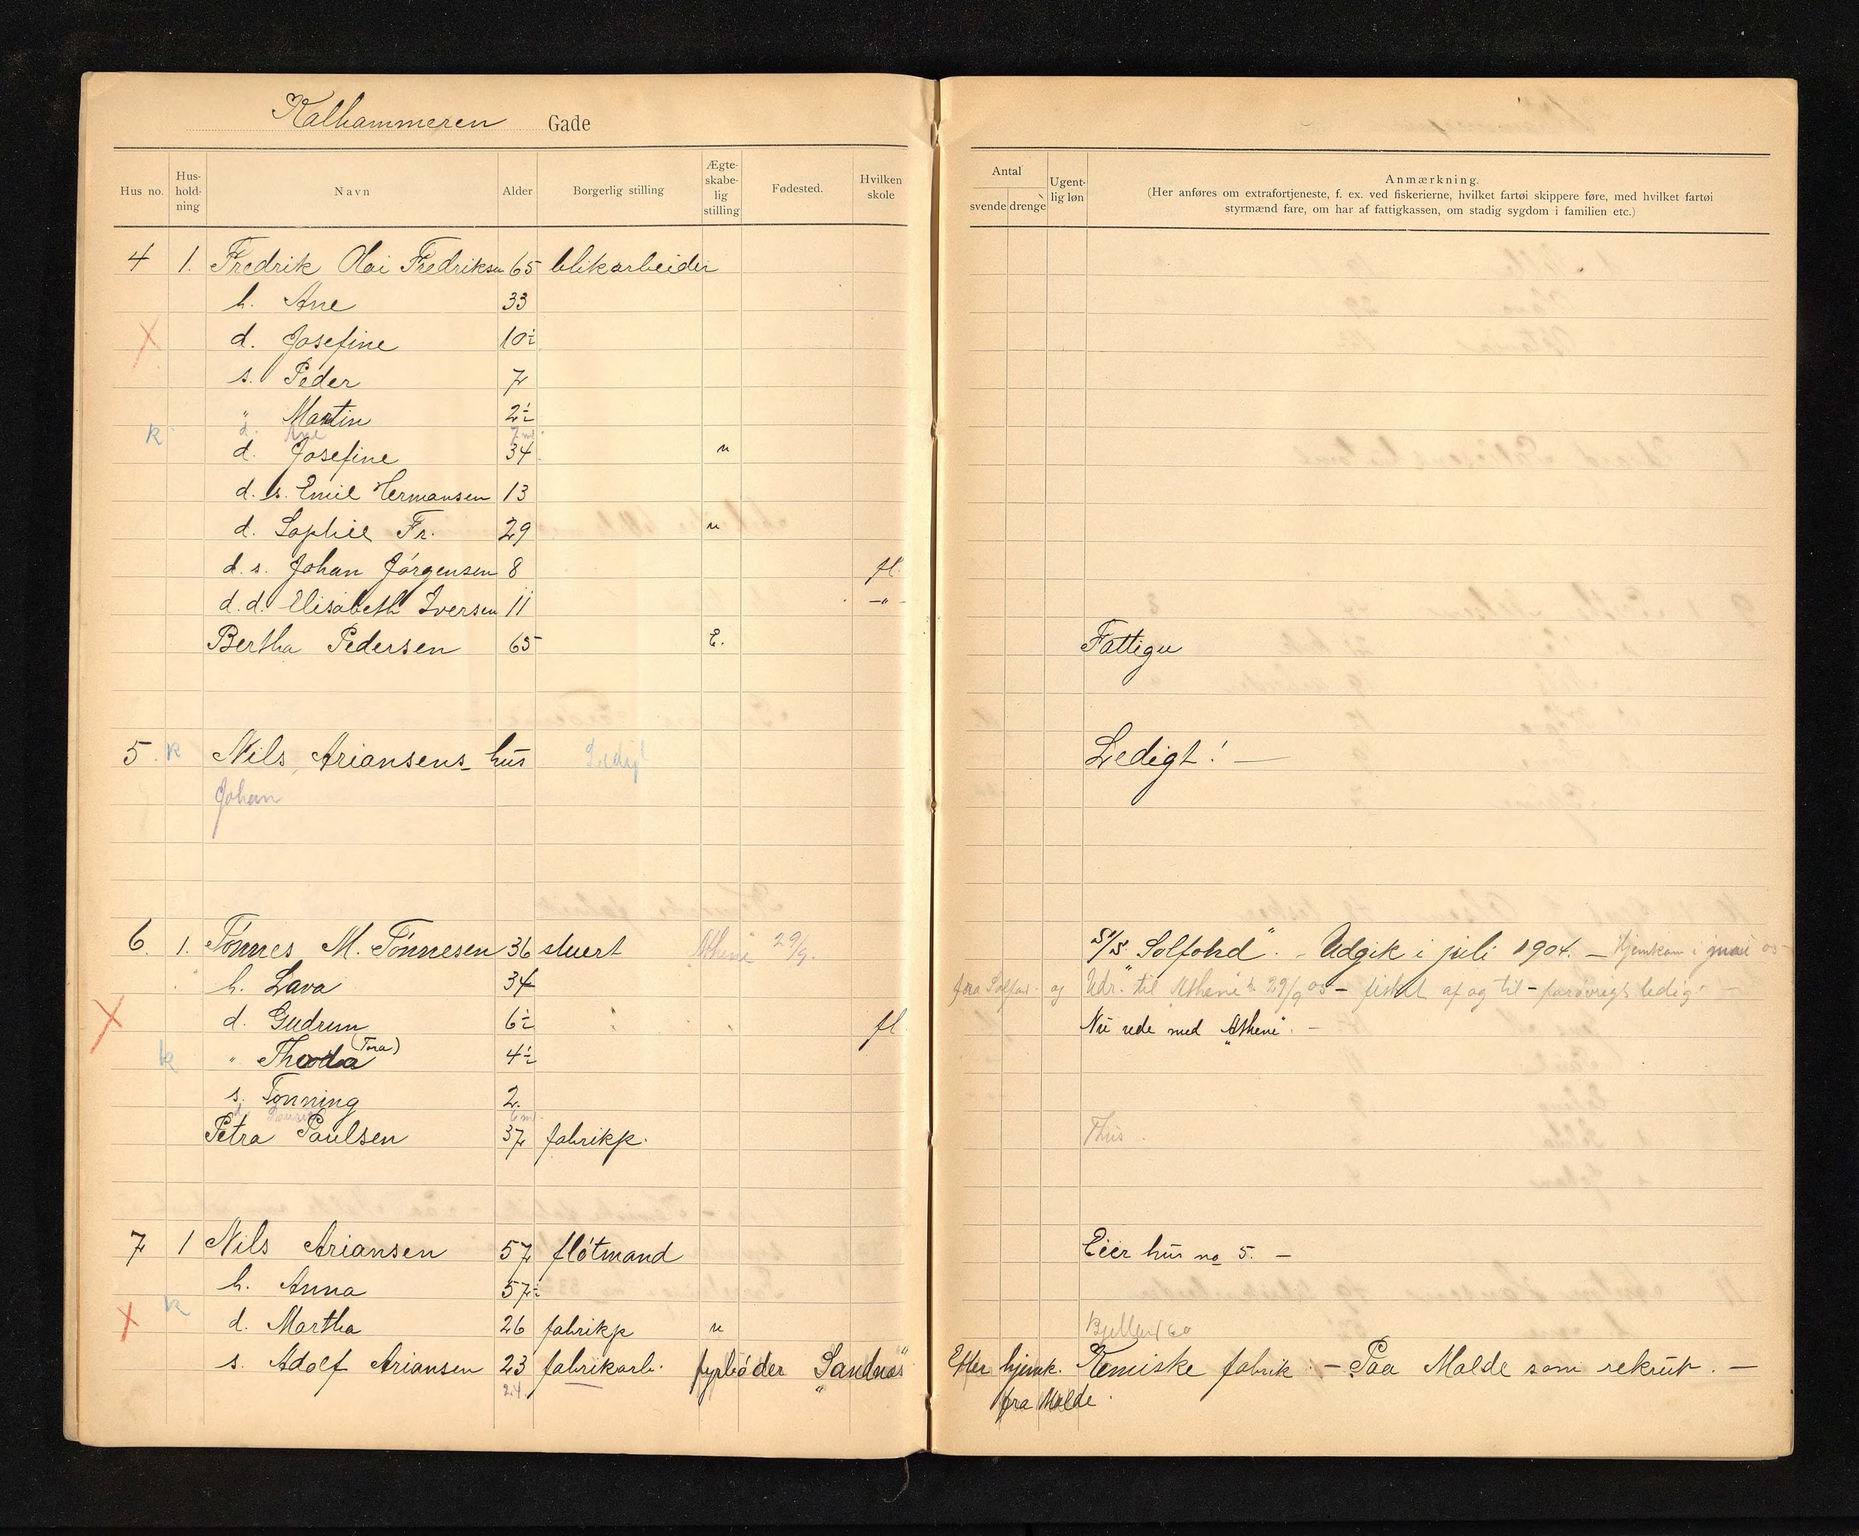 Kalhammeren Gade
Hus no. Hus-hold-ning Navn Alder Borgerlig stilling Ægte-skabe-lig stilling Fødested. Hvilken skole
Antal svende drenge Ugent-lig løn Anmærkning.
(Her anføres om extrafortjeneste, f. ex. ved fiskerierne, hvilket fartøi skippere føre, med hvilket fartøi
styrmænd fare, om har af fattigkassen, om stadig sygdom i familien etc.)
4 1. Fredrik Olai Fredriksen 65 blikarbeider
h. Ane 33
X d. Josefine 10½
s. Peder 7
" Martin 2½
k d. Ane 7 m
d. Josefine 34 u
d. s. Emil Hermansen 13
d. Sophie Fr. 29 u
d. s. Johan Jørgensen 8 fl.
d. d. Elisabeth Iversen 11 -"-
Bertha Pedersen 65 E. Fattigu
5. k Nils Ariansens hus Ledigt Ledigt! —
Johan
6. 1. Tønnes M. Tønnesen 36 stuert Athene 29/9. S/S Solfond". - Udgik i juli 1904. — Hjemkom i mai 05
h. Lava 34 fra Solfon. og Udr. til "Athene" 29/9 05 —
X d. Gudrun 6½ fl. Nu ude med "Athene". —
k " Thoda (Tora) 4½
s. Tønning 2.
d. 6 m.
Petra Paulsen 37 fabrikp. Thus.
7 1 Nils Ariansen 57 fløtmand Eier hus no 5. —
h. Anna 57½
X k d. Martha 26 fabrikp u
s. Adolf Ariansen 23 fabrikarb. fyrbøder "Sandnæs" Efter hjemk. Kemiske fabrik. — Paa Malde som rekrut. —
24 fra Malde.